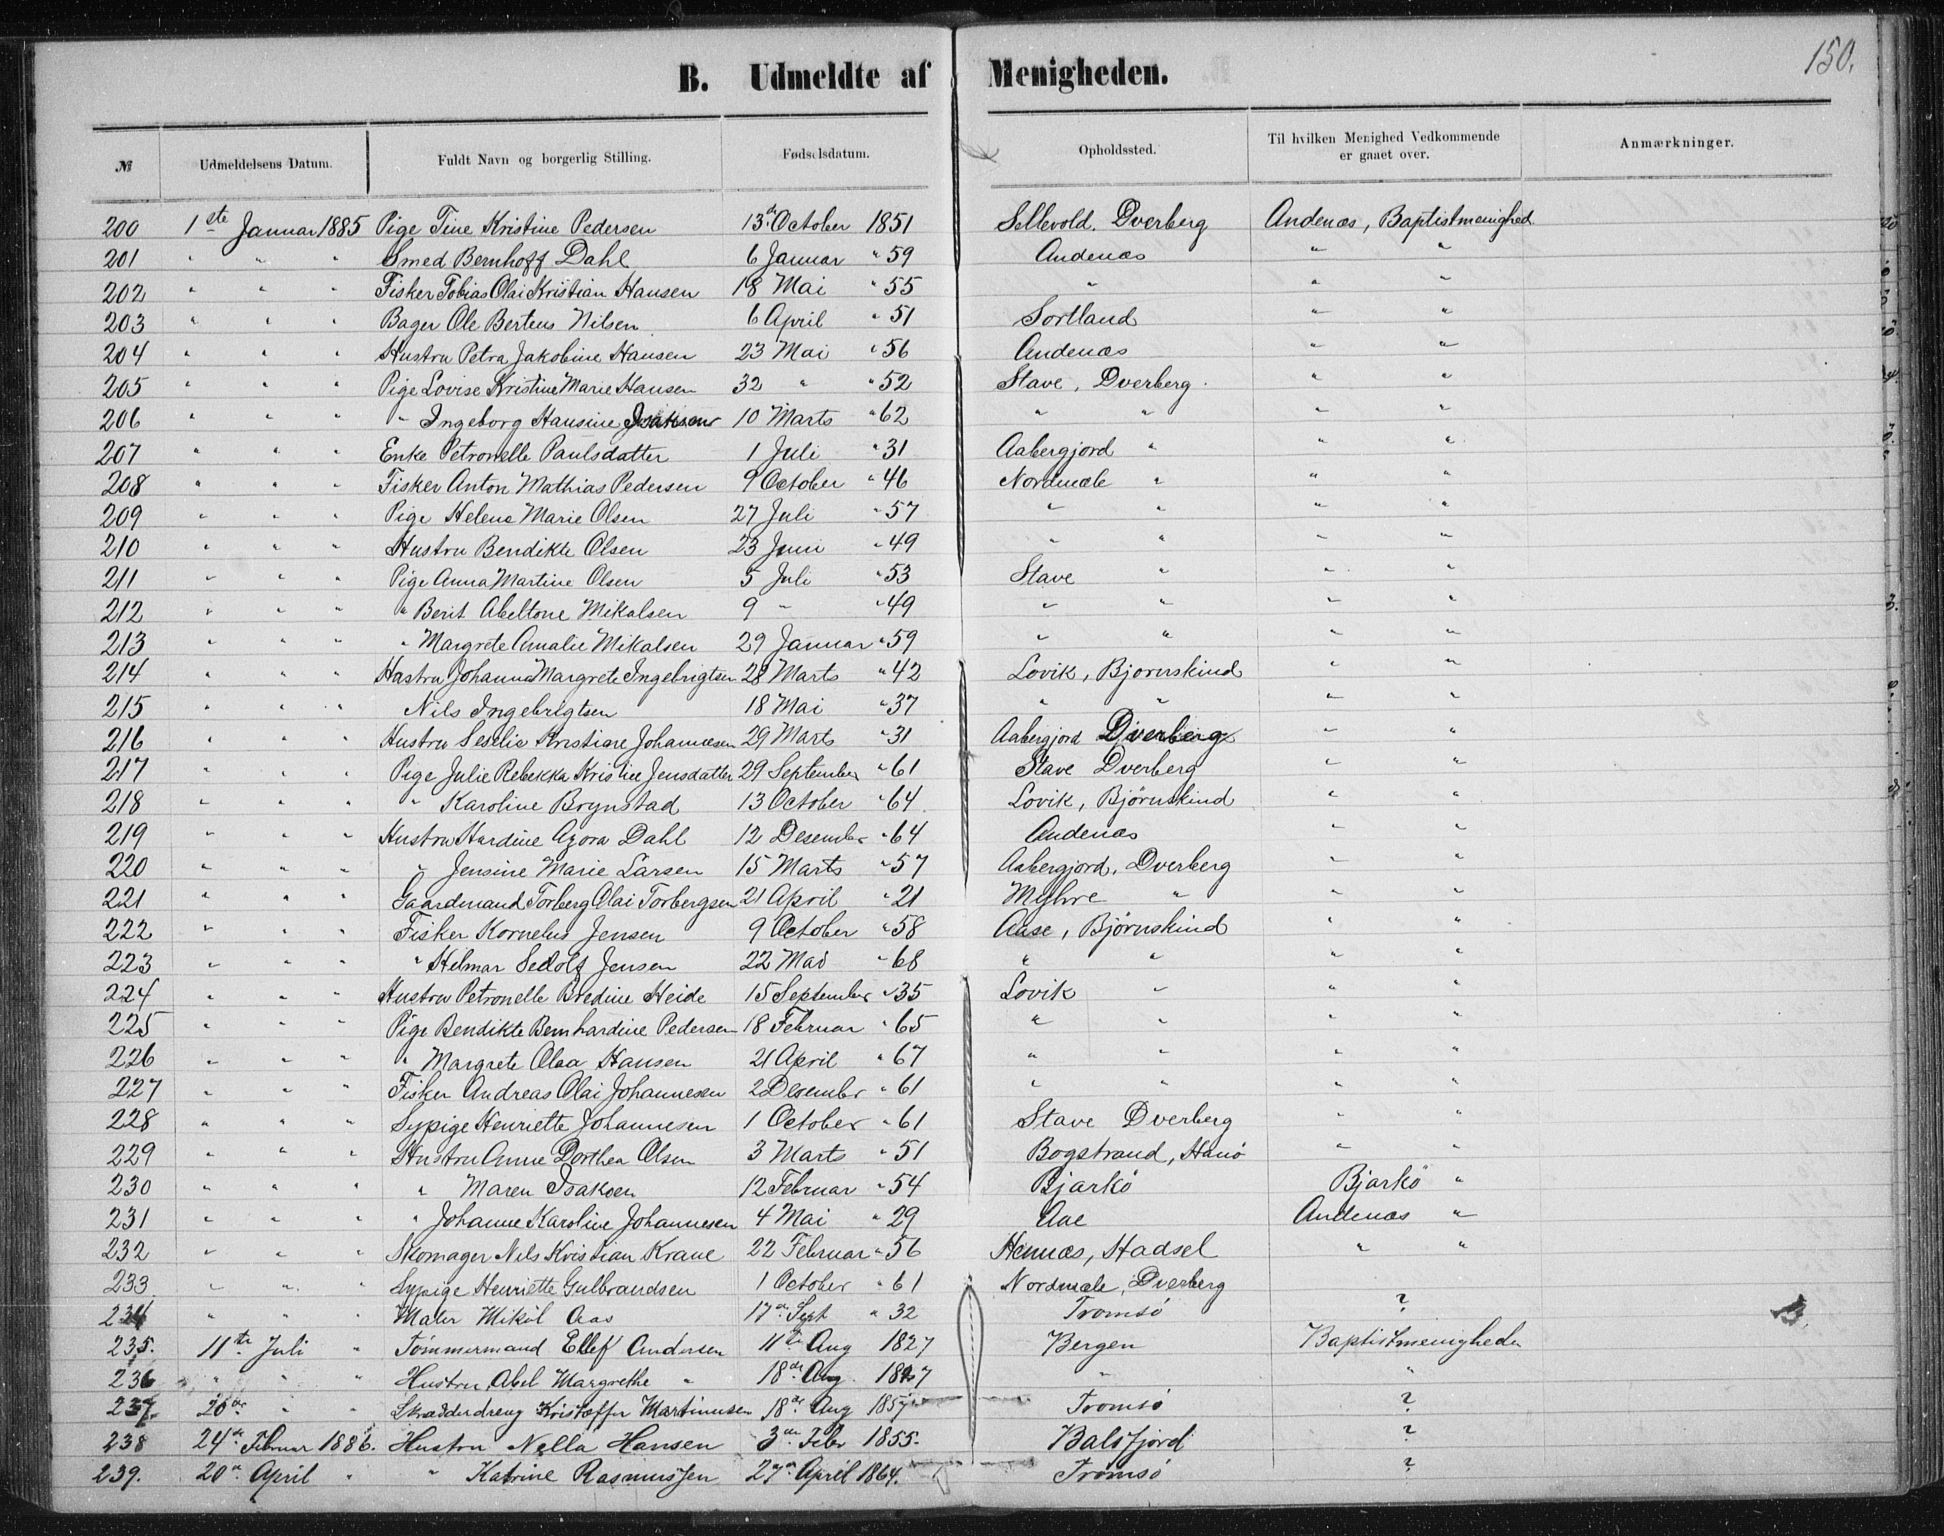 150.
B. Udmeldte af Menigheden.
№ Udmeldelsens Datum. Fuldt Navn og borgerlig Stilling. Fødselsdatum. Opholdssted. Til hvilken Menighed Vedkommende er gaaet over. Anmærkninger.
200 1ste Januar 1885 Pige Tine Kristine Pedersen 13de October 1851 Sellevold, Dverberg Andenæs, Baptistmenighed
201 " " " Smed Bernhoff Dahl 6 Januar " 59 Andenæs " "
202 " " " Fisker Tobias Olai Kristian Hansen 18 Mai " 55 " " "
203 " " " Bager Ole Berteus Nilsen 6 April " 51 Sortland " "
204 " " " Hustru Petra Jakobine Hansen 23 Mai " 56 Andenæs " "
205 " " " Pige Lovise Kristine Marie Hansen 32 " " 52 Stave, Dverberg. " "
206 " " " " Ingeborg Hansine Isaksen 10 Marts " 62 " " " "
207 " " " Enke Petronelle Paulsdatter 1 Juli " 31 Aabergjord " " "
208 " " " Fisker Anton Mathias Pedersen 9 October " 46 Nordmæle " " "
209 " " " Pige Helene Marie Olsen 27 Juli " 57 " " " "
210 " " " Hustru Bendikte Olsen 23 Juni " 49 " " " "
211 " " " Pige Anna Martine Olsen 5 Juli " 53 Stave " " "
212 " " " " Berit Abeltone Mikalsen 9 " " 49 " " " "
213 " " " " Margrete Amalie Mikalsen 29 Januar " 59 " " " "
214 " " " Hustru Johanna Margrete Ingebrigtsen 28 Marts " 42 Lovik, Bjornskind " "
215 " " " Nils Ingebrigtsen 18 Mai " 37 " " " "
216 " " " Hustru Seselie Kristine Johannesen 29 Marts " 31 Aabergjord Dverberg " "
217 " " " Pige Julie Rebekka Kristine Jensdatter 29 September " 61 Stave Dverberg " "
218 " " " " Karoline Brynstad 13 October " 64 Lovik, Bjørnskind " "
219 " " " Hustru Hardine Azora Dahl 12 Desember " 64 Andenæs " "
220 " " " " Jensine Marie Larsen 15 Marts " 57 Aabergjord, Dverberg " "
221 " " " Gaardmand Torberg Olai Torbergsen 21 April " 21 Myhre " " "
222 " " " Fisker Kornelus Jensen 9 October " 58 Aase, Bjørnskind " "
223 " " " " Hilmar Sedolf Jensen 22 Mai " 68 " " " "
224 " " " Hustru Petronelle Bredine Heide 15 September " 35 Lovik " " "
225 " " " Pige Bendikte Bernhardine Pedersen 18 Februar " 65 " " " "
226 " " " " Margrete Olea Hansen 21 April " 67 " " " "
227 " " " Fisker Andreas Olai Johannesen 2 Desember " 61 " " " "
228 " " " Sypige Henriette Johannesen 1 October " 61 Stave Dverberg " "
229 " " " Hustru Anne Dorthea Olsen 3 Marts " 51 Bogstrand, Hanø " "
230 " " " " Maren Isaksen 12 Februar " 54 Bjarkö Bjarkö "
231 " " " " Johanne Karoline Johannesen 4 Mai " 29 Aae Andenæs "
232 " " " Skomager Nils Kristian Krane 22 Februar " 56 Hennæs, Hadsel " "
233 " " " Sypige Henriette Gulbrandsen 1 October " 61 Nordmæle, Dverberg
234 " " " Maler Mikal Aas 17de Sept " 32 Tromsö ?
235. 11te Juli " Tømmermand Ellef Andersen 11te Aug 1827 Bergen Baptistmenigheden
236 " " " Hustru Abel Margrethe " 18de Aug 1827 " "
237. 20de " " Skrædderdreng Kristoffer Martinusen 18de Aug 1857 Tromsö ?
238 24de Februar 1886. Hustru Nella Hansen 3de Febr 1855. Balsfjord ?
239. 20de April " " Katrine Rasmussen 27de April 1864. Tromsö ?